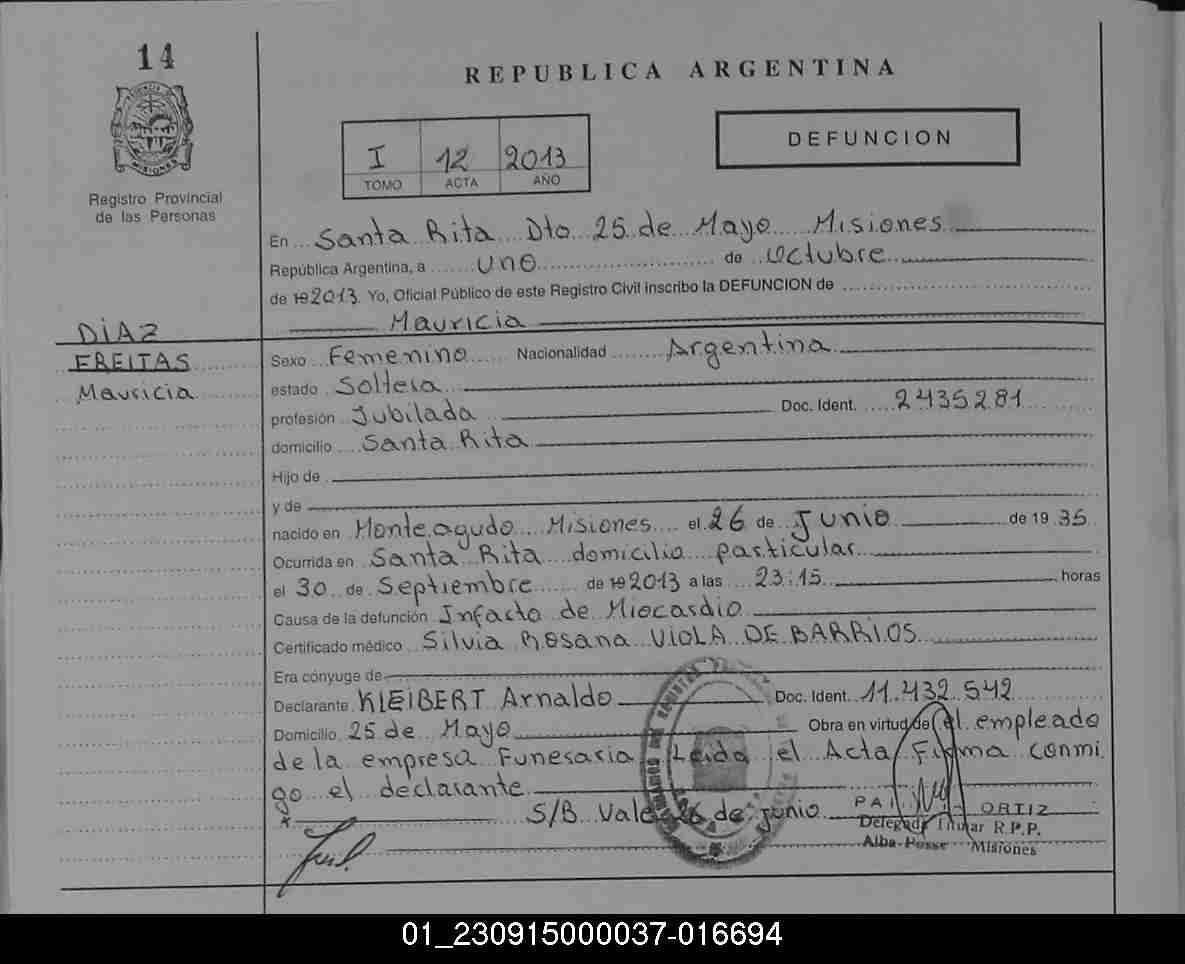 14
REPUBLICA ARGENTINA
Registro Provincial
de las Personas
I 12 2013
TOMO ACTA AÑO
DEFUNCION
En Santa Rita Dto 25 de Mayo Misiones
República Argentina, a uno de Octubre
de 19 2013. Yo, Oficial Público de este Registro Civil inscribo la DEFUNCION de
Mauricia
DÍAZ
FREITAS
Mauricia
Sexo Femenino Nacionalidad Argentina
estado Soltera
profesión Jubilada Doc. Ident. 2435281
domicilio Santa Rita
Hijo de
y de
nacido en Monteagudo Misiones el 26 de Junio de 19 35
Ocurrida en Santa Rita domicilio particular
el 30 de Septiembre de 19 2013 a las 23:15 horas
Causa de la defunción Infacto de Miocardio
Certificado médico Silvia Rosana VIOLA DE BARRIOS
Era cónyuge de
Declarante KLEIBERT Arnaldo Doc. Ident. 11.432.542
Domicilio 25 de Mayo Obra en virtud de el empleado
de la empresa Funeraria Leida el Acta Firma conmi
go el declarante
S/B Vale 26 de junio
ORTIZ
Delegada Titular R.P.P.
Alba Posse Misiones
01_230915000037-016694